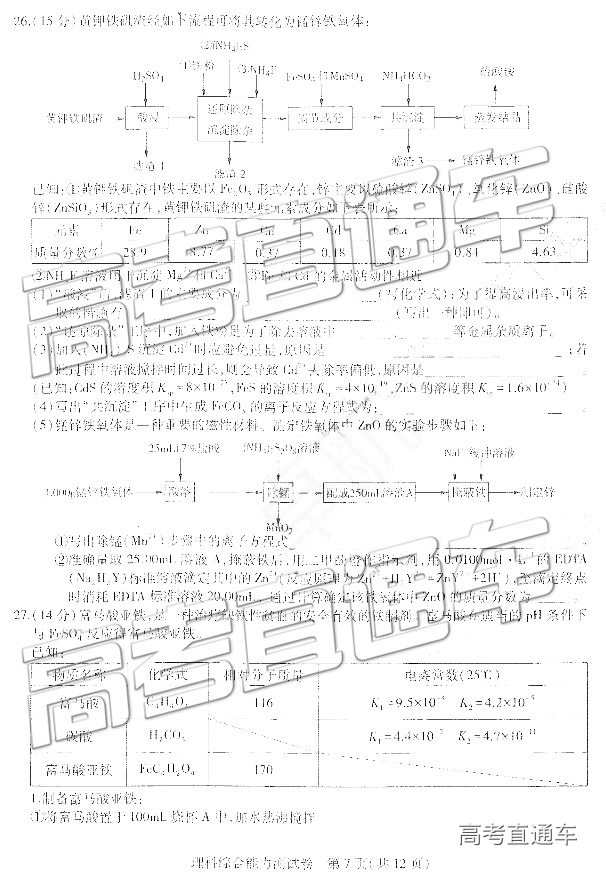 26.(15分)黄钾铁矾渣经如下流程可将其转化为锰锌铁氧体:
(2)(NH₄)₂S
(1)铁粉 (3)NH₄F
H₂SO₄ FeSO₄和MnSO₄ NH₄HCO₃ 硫酸铵
黄钾铁矾渣 酸浸 还原除杂 沉淀除杂 调节成分 共沉淀 蒸发结晶
滤渣1 滤渣2 滤渣3 锰锌铁氧体
已知:①黄钾铁矾渣中铁主要以Fe₂O₃形式存在,锌主要以硫酸锌(ZnSO₄)、氧化锌(ZnO)、硅酸
锌(ZnSiO₃)形式存在,黄钾铁矾渣的某些元素成分如下表所示:
元素 Fe Zn Cu Cd Ca Mg Si
质量分数% 28.9 8.77 0.37 0.18 0.37 0.84 4.63
②NH₄F溶液用于沉淀Mg²⁺和Ca²⁺ ③Fe与Cd的金属活动性相近
(1)"酸浸"后,滤渣1的主要成分为 (写化学式);为了提高浸出率,可采
取的措施有 (写出一种即可)。
(2)"还原除杂"工序中,加入铁粉是为了除去溶液中 等金属杂质离子。
(3)加入(NH₄)₂S沉淀Cd²⁺时应避免过量,原因是 ;若
此过程中溶液搅拌时间过长,则会导致Cd²⁺去除率偏低,原因是
(已知:CdS的溶度积Kₛₚ=8×10⁻²⁷,FeS的溶度积Kₛₚ=4×10⁻¹⁹,ZnS的溶度积Kₛₚ=1.6×10⁻²⁴)
(4)写出"共沉淀"工序中生成FeCO₃的离子反应方程式为:
(5)锰锌铁氧体是一种重要的磁性材料。测定铁氧体中ZnO的实验步骤如下:
25mL17%盐酸 (NH₄)₂S₂O₈溶液 缓冲溶液
1.000g锰锌铁氧体 酸溶 除锰 配成250mL溶液A 掩蔽铁 测定锌
MnO₂
①写出除锰(Mn²⁺)步骤中的离子方程式
②准确量取25.00mL溶液A,掩蔽铁后,用二甲酚橙作指示剂,用0.0100mol·L⁻¹的EDTA
(Na₂H₂Y)标准溶液滴定其中的Zn²⁺(反应原理为Zn²⁺+H₂Y²⁻=ZnY²⁻+2H⁺),至滴定终点
时消耗EDTA标准溶液20.00mL。通过计算确定该铁氧体中ZnO的质量分数为
27.(14分)富马酸亚铁,是一种治疗缺铁性贫血的安全有效的铁制剂。富马酸在适当的pH条件下
与FeSO₄反应得富马酸亚铁。
已知:
物质名称 化学式 相对分子质量 电离常数(25℃)
富马酸 C₄H₄O₄ 116 K₁=9.5×10⁻⁴ K₂=4.2×10⁻⁵
碳酸 H₂CO₃ K₁=4.4×10⁻⁷ K₂=4.7×10⁻¹¹
富马酸亚铁 FeC₄H₂O₄ 170
Ⅰ.制备富马酸亚铁:
①将富马酸置于100mL烧杯A中,加水热沸搅拌
理科综合能力测试卷 第7页(共12页)
高考直通车
高考直通车
高考直通车
高考直通车